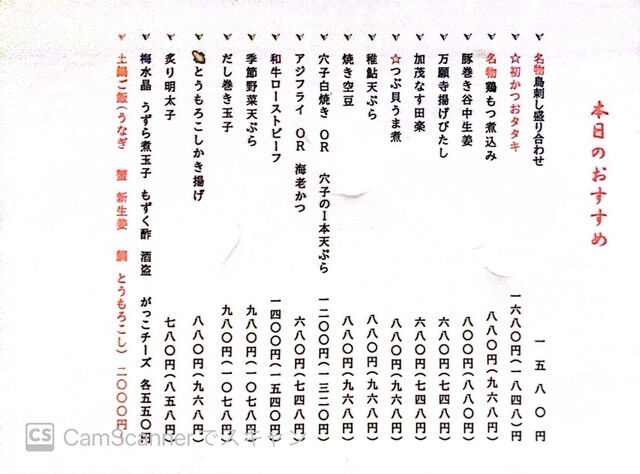 本日のおすすめ
名物鳥刺し盛り合わせ 一五八〇円
☆初かつおタタキ 一六八〇円(一八四八)円
名物鶏もつ煮込み 八八〇円(九六八)円
豚巻き谷中生姜 八〇〇円(八八〇)円
万願寺揚げびたし 六八〇円(七四八)円
加茂なす田楽 六八〇円(七四八)円
☆つぶ貝うま煮 八八〇円(九六八)円
稚鮎天ぷら 八八〇円(九六八)円
焼き空豆 八八〇円(九六八)円
穴子白焼き OR 穴子の1本天ぷら 一二〇〇円(一三二〇)円
アジフライ OR 海老かつ 六八〇円(七四八)円
和牛ローストビーフ 一四〇〇円(一五四〇)円
季節野菜天ぷら 九八〇円(一〇七八)円
だし巻き玉子 九八〇円(一〇七八)円
とうもろこしかき揚げ 八八〇円(九六八)円
炙り明太子 七八〇円(八五八)円
梅水晶 うずら煮玉子 もずく酢 酒盗 がっこチーズ 各五五〇円
土鍋ご飯(うなぎ 蟹 新生姜 鯛 とうもろこし) 二〇〇〇円
CS CamScannerでスキャン